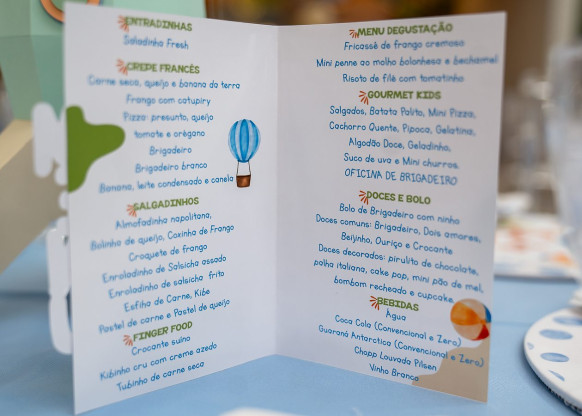 ENTRADINHAS
Saladinha Fresh
CREPE FRANCÊS
Carne seca, queijo e banana da terra
Frango com catupiry
Pizza: presunto, queijo
tomate e orégano
Brigadeiro
Brigadeiro branco
Banana, leite condensado e canela
SALGADINHOS
Almofadinha napolitana,
Bolinho de queijo, Coxinha de Frango
Croquete de frango
Enroladinho de Salsicha assado
Enroladinho de salsicha frito
Esfiha de Carne, Kibe
Pastel de carne e Pastel de queijo
FINGER FOOD
Crocante suíno
Kibinho cru com creme azedo
Tubinho de carne seca
MENU DEGUSTAÇÃO
Fricassê de frango cremoso
Mini penne ao molho bolonhesa e bechamel
Risoto de filé com tomatinho
GOURMET KIDS
Salgados, Batata Palito, Mini Pizza,
Cachorro Quente, Pipoca, Gelatina,
Algodão Doce, Geladinho,
Suco de uva e Mini churros.
OFICINA DE BRIGADEIRO
DOCES E BOLO
Bolo de Brigadeiro com ninho
Doces comuns: Brigadeiro, Dois amores,
Beijinho, Ouriço e Crocante
Doces decorados: pirulito de chocolate,
palha italiana, cake pop, mini pão de mel,
bombom recheado e cupcake
BEBIDAS
Água
Coca Cola (Convencional e Zero)
Guaraná Antarctica (Convencional e Zero)
Chopp Louvada Pilsen
Vinho Branco